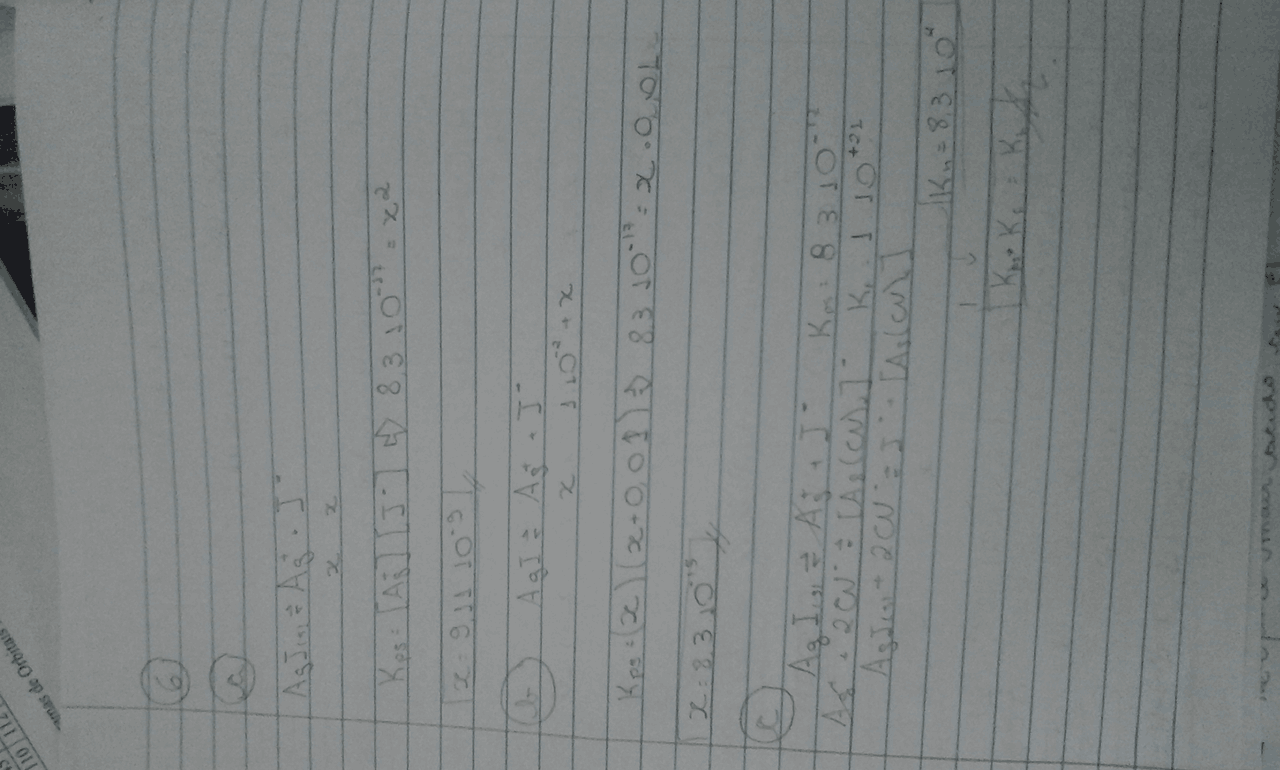 6
a
AgI(s) ⇌ Ag⁺ + I⁻
x x
Kps = [Ag⁺][I⁻] ⇨ 8,3 10⁻¹⁷ = x²
x = 9,11 10⁻⁹
b
AgI ⇌ Ag⁺ + I⁻
x 1 10⁻² + x
Kps = (x)(x+0,01) ⇨ 8,3 10⁻¹⁷ = x . 0,01
x = 8,3 10⁻¹⁵
c
AgI(s) ⇌ Ag⁺ + I⁻ Kps = 8,3 10⁻¹⁷
Ag⁺ + 2CN⁻ ⇌ [Ag(CN)₂]⁻ Kf = 1 10⁺²¹
AgI(s) + 2CN⁻ ⇌ I⁻ + [Ag(CN)₂]
= 8,3 10⁴
mas de Orbitais
110 112